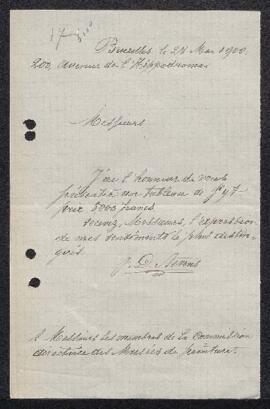 Bruxelles le 28 Mai 1900.
200, avenue de l'Hippodrome
Messieurs
J'ai l'honneur de vous
présenter un tableau de
prix 5000 francs
recevez, Messieurs, l'expression
de mes sentiments le plus distin-
gués.
A Messieurs les membres de la Commission
directrice des Musées de peinture.